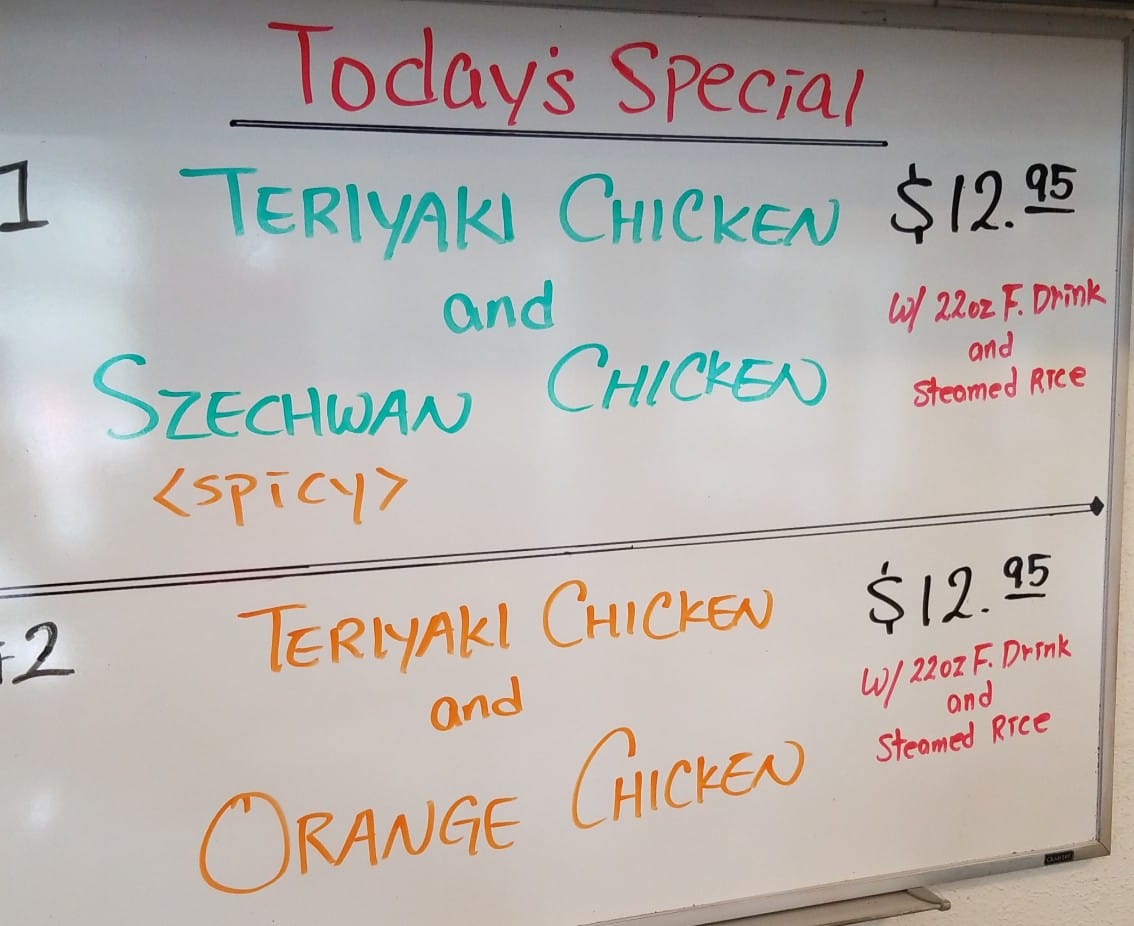 Today's Special
1 TERIYAKI CHICKEN $12.95
and
SZECHWAN CHICKEN
<SPICY>
W/ 22oz F. Drink
and
Steamed Rice
#2 TERIYAKI CHICKEN $12.95
and
ORANGE CHICKEN
W/ 22oz F. Drink
and
Steamed Rice
Quartet